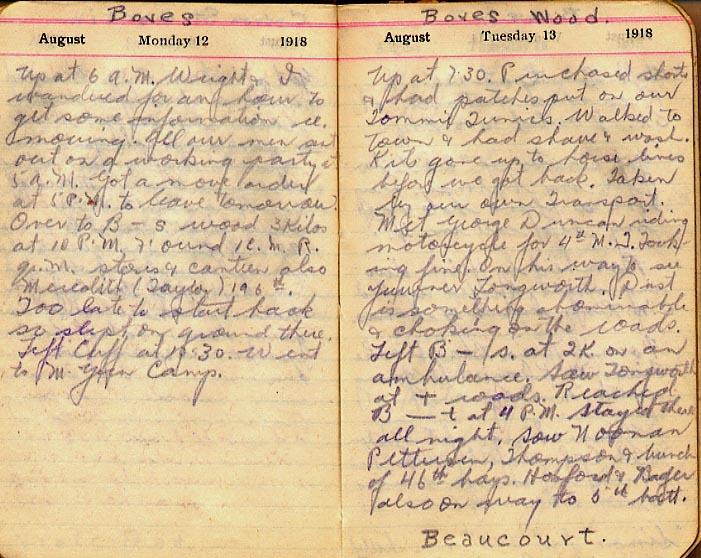 Boves
August Monday 12 1918
Up at 6 a.m. Wright & I
wandered for an hour to
get some information re.
moving. All our men set
out on a working party at
5 a.m. Got a move order
at 5 P.M. to leave tomorrow.
Over to B – s wood 3 Kilos
at 10 P.M. Found 1 C.M.R.
Q.M. stores & canteen also
Meredith (Taylor) 196th.
Too late to start back
so slept on ground there.
Left Cliff at 9.30. Went
to M. Gun Camp.
Boves Wood.
August Tuesday 13 1918
Up at 7.30. Purchased shorts
& had patches put on our
Tommie Tunics. Walked to
town & had shave & wash.
Kits gone up to horse lines
before we got back. Taken
by our own Transport.
Met George Duncan riding
motorcycle for 4th M. G. Look-
ing fine. On his way to see
Longworth. Dust
is something abominable
& choking on the roads.
Left B – s. at 2 on an
ambulance. Saw Longworth
at + roads. Reached
B — t at 4 P.M. Stayed there
all night. Saw Noonan
Thompson & bunch
of 46th boys. Hosford &
also on way to 5th batt.
Beaucourt.